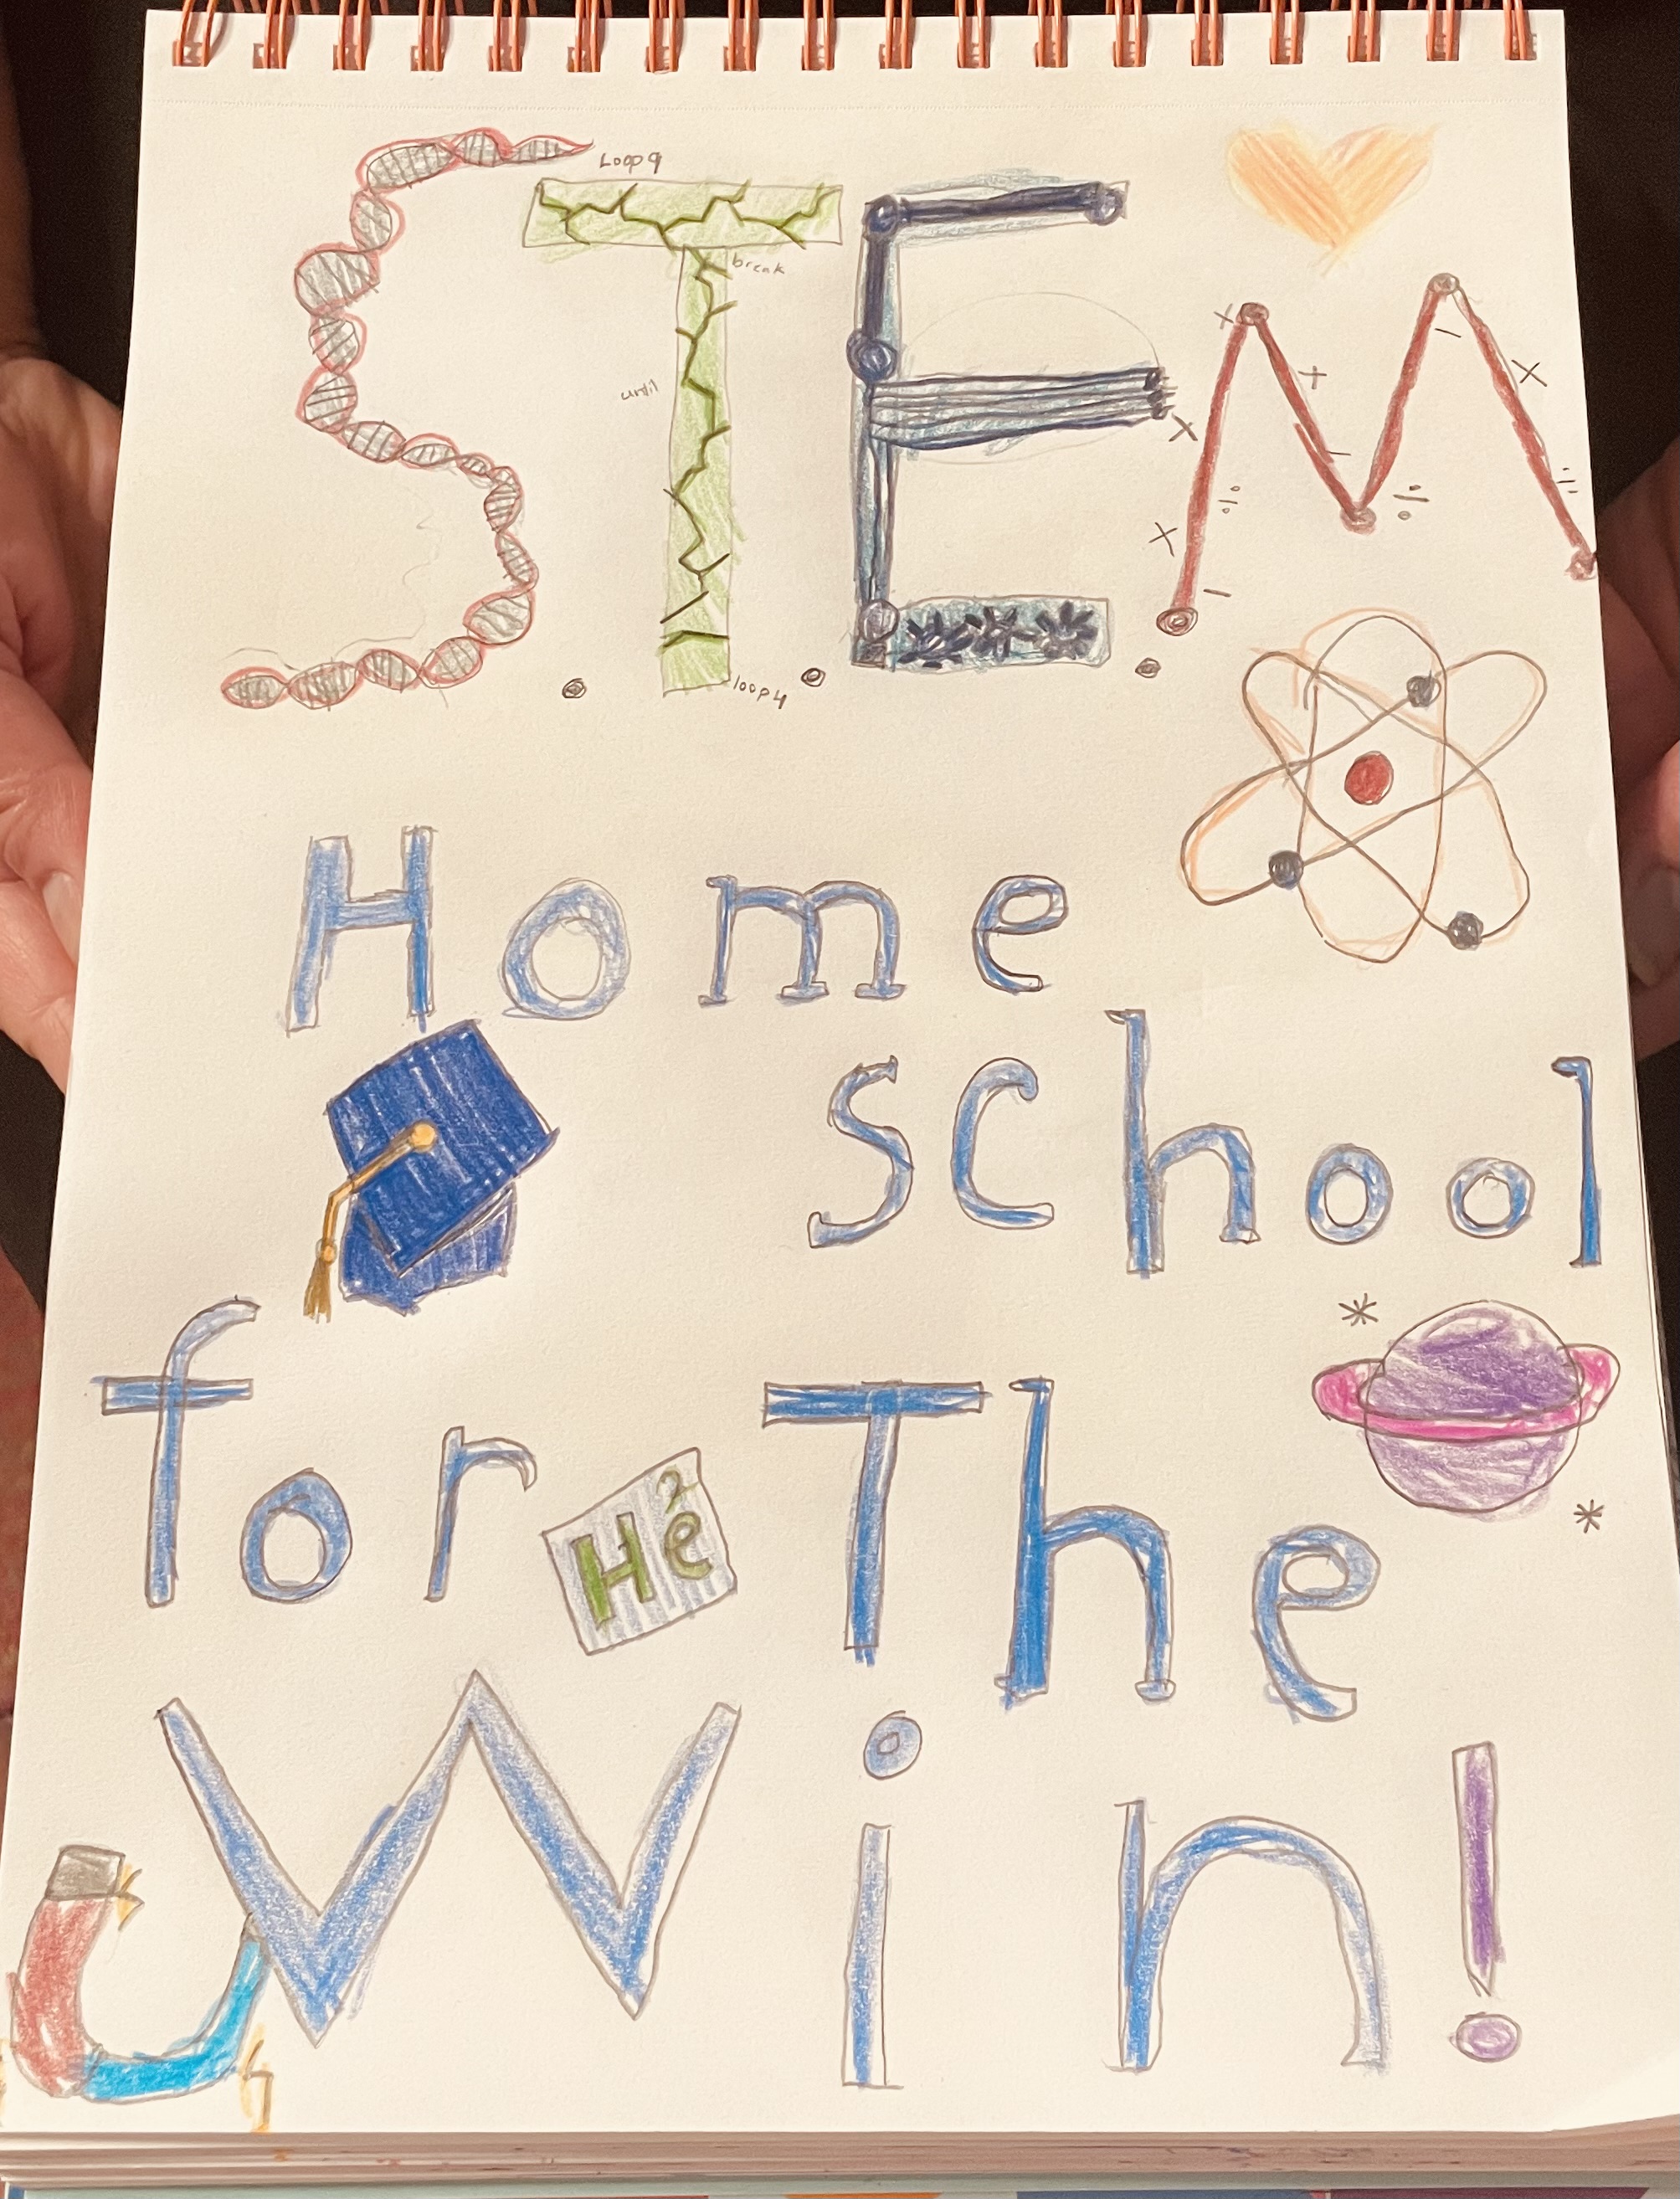 S.T.E.M
Loop 9
break
until
loop 4
Home
school
for The
He 2
Win!